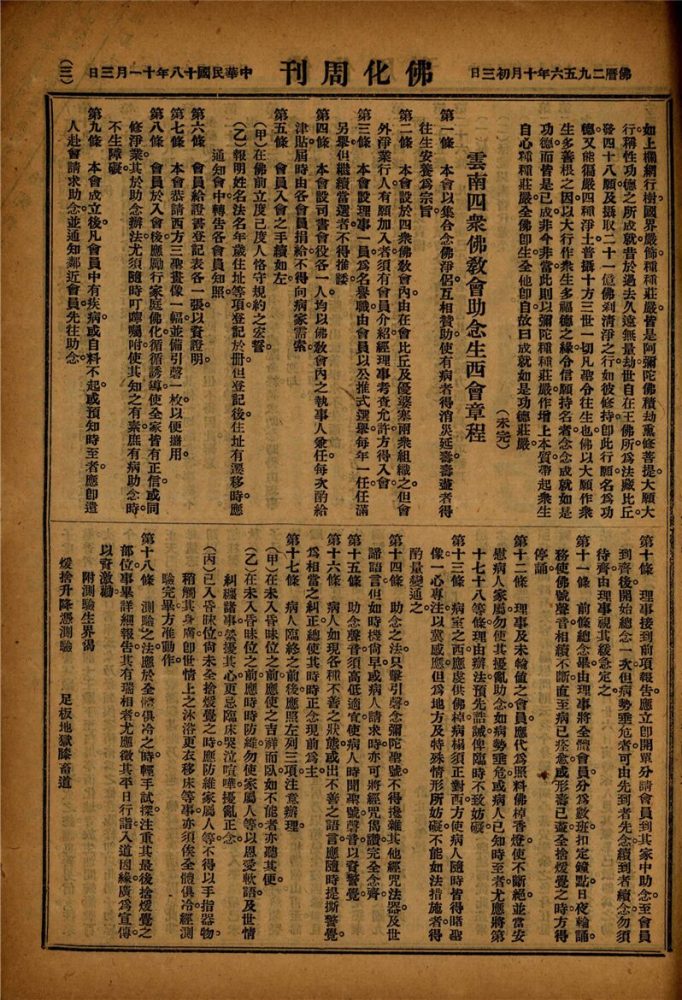 佛曆二九五六年十月初三日
佛化周刊
中華民國十八年十一月三日
(三)
如上欄網行樹國界嚴飾種種莊嚴皆是阿彌陀佛積劫熏修菩提大願大
行稱性功德之所成就昔於過去久遠無量劫世自在王佛所爲法藏比丘
發四十八願及攝取二十一億佛剎清淨之行如彼修持卽此行願名爲功
德又能徧嚴四種淨土普攝十方三世一切凡聖令往生也佛以大願作衆
生多善根之因以大行作衆生多福德之緣令信願持名者念念成就如是
功德而皆是已成非今非當此則以彌陀種種莊嚴作增上本質帶起衆生
自心種種莊嚴全佛卽生全他卽自故曰成就如是功德莊嚴
(未完)
雲南四衆佛敎會助念生西會章程
第一條 本會以集合念佛淨侶互相贊助使有病者得消災延壽壽盡者得
往生安養爲宗旨
第二條 本會設於四衆佛敎會內由在會比丘及優婆塞兩衆組織之但會
外淨業行人有願加入者須有會員介紹經理事考查允許方得入會
第三條 本會設理事一員爲名譽職由會員以公推式選舉每年一任任滿
另舉但繼續當選者不得推諉
第四條 本會設司書會役各一人均以佛敎會內之執事人兼任每次酌給
津貼屆時由各會員捐給不得向病家需索
第五條 會員入會之手續如左
(甲)在佛前立度己度人恪守規約之宏誓
(乙)報明姓名法名年歲住址等項登記於册但登記後住址有遷移時應
通知會中轉告各會員知照
第六條 會員給證書登記表各一張以資證明
第七條 本會恭請西方三聖畫像一幅並備引磬一枚以便攜用
第八條 會員於入會後應勵行家庭佛化循循誘導使全家皆有正信或同
修淨業其於助念辦法尤須隨時叮嚀囑咐使其知之有素庶有病助念時
不生障礙
第九條 本會成立後凡會員中有疾病或自料不起或預知時至者應卽遣
人赴會請求助念並通知鄰近會員先往助念
第十條 理事接到前項報告應立卽開單分請會員到其家中助念至會員
到齊後開始總念一次但病勢垂危者可由先到者先念續到者續念勿須
待齊由理事視其緩急定之
第十一條 前條總念畢由理事將全體會員分爲數班扣定鐘點日夜輪誦
務使佛號聲音相續不斷直至病已痊愈或形壽已盡全捨煖覺之時方得
停誦
第十二條 理事及未輪値之會員應代爲照料佛棹香燈使不斷絕並當安
慰病人家屬勿使其擾亂助念如病勢垂危或病人已知時至者尤應將第
十七十八等條理由辦法預先誥誡俾臨時不致妨礙
第十三條 病室之西應虔供佛棹病榻須正對西方使病人隨時皆得睹聖
像一心專注以冀感應但爲地方及特殊情形所妨礙不能如法措施者得
酌量變通之
第十四條 助念之法只擊引磬念彌陀聖號不得攙雜其他經咒法器及世
諦語言但如時機尙早或病人請求時亦可將經咒偈讚完全念齊
第十五條 助念聲音須高低適宜使病人時聞聖號聲音以資警覺
第十六條 病人如現各種不善之狀態或出不善之語言應隨時提撕警覺
爲相當之糾正總使其時時正念現前爲主
第十七條 病人臨終之前後應照左列三項注意辦理
(甲)在未入昏昧位之前應使之吉祥而臥如不能者亦聽其便
(乙)在未入昏昧位之前應時時防維勿使家屬人等以恩愛軟語及世情
糾纏諸事縈擾其心更忌臨床哭泣喧嘩擾亂正念
(丙)已入昏昧位尙未全捨煖覺之時應防維家屬人等不得以手指器物
稍觸其身膚卽世情上之沐浴更衣移床等事亦須俟全體俱冷經測
驗完畢方准動作
第十八條 測驗之法應於全體俱冷之時輕手試探注重其最後捨煖覺之
部位事畢詳細報告其有瑞相者尤應徵其平日行諸入道因緣廣爲宣傳
以資激勸
附測驗生界偈
煖捨升降憑測驗 足板地獄膝畜道